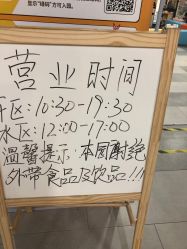 显示“绿码”方可入园。
营业时间
区:10:30-19:30
水区:12:00-17:00
温馨提示:本园谢绝
外带食品及饮品!!!